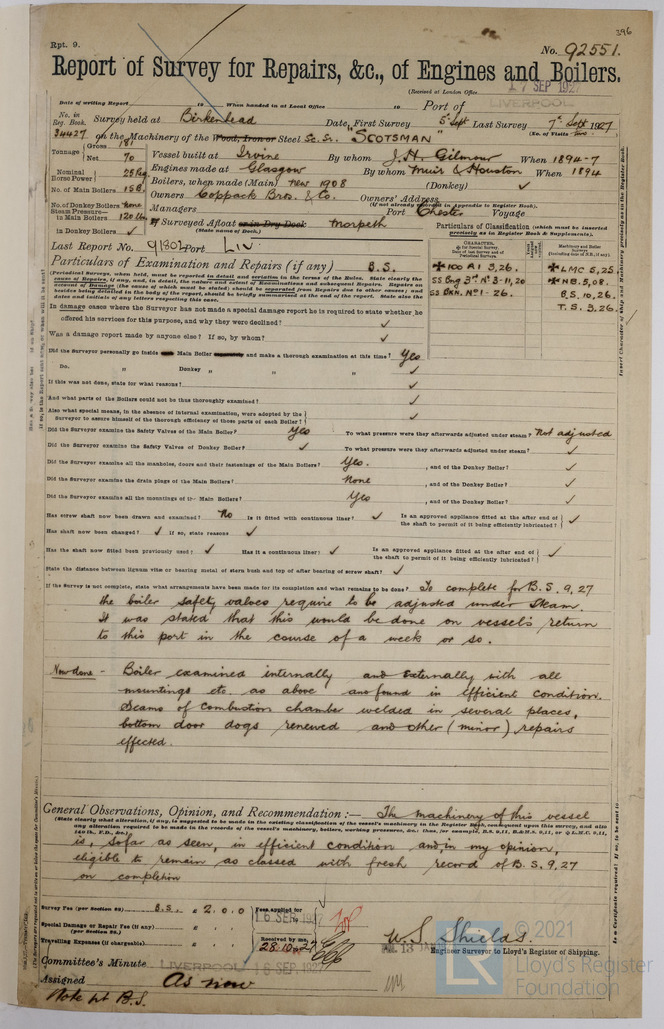 396
Rpt. 9.
No. 92551.
Report of Survey for Repairs, &c., of Engines and Boilers.
(Received at London Office 17 SEP 1927
Date of writing Report to When handed in at Local Office to Port of LIVERPOOL
No. in Reg. Book. Survey held at Birkenhead Date, First Survey 5th Sept Last Survey 7th Sept 1927
(No. of Visits two)
34427 on the Machinery of the Wood, Iron or Steel Sc. Sr. "SCOTSMAN"
Tonnage Gross 181
Net 70
Vessel built at Irvine By whom J. H. Gilmour When 1894-7
Nominal Horse Power 25
Engines made at Glasgow By whom Muir & Houston When 1894
No. of Main Boilers 1SB
Boilers, when made (Main) New 1908 (Donkey) ✓
No. of Donkey Boilers None
Owners Coppack Bros. & Co. Owners' Address
(if not already recorded in Appendix to Register Book.)
Steam Pressure—
in Main Boilers 120 lbs
Managers Port Chester Voyage
in Donkey Boilers ✓
If Surveyed Afloat or in Dry Dock Morpeth
(State name of Dock.)
Particulars of Classification (which must be inserted precisely as in Register Book & Supplements).
Last Report No. 91802 Port Liv
Particulars of Examination and Repairs (if any) B.S.
✠100 A1 3,26. ✠LMC 5,25
SS Eng 3rd No 3-11,20 ✠NB 5,08.
SS Bkn. No 1-26. B.S. 10,26
T.S. 3,26.
In damage cases where the Surveyor has not made a special damage report he is required to state whether he
offered his services for this purpose, and why they were declined? ✓
Was a damage report made by anyone else? If so, by whom? ✓
Did the Surveyor personally go inside each Main Boiler separately and make a thorough examination at this time? Yes
Do. " Donkey " " " ✓
If this was not done, state for what reasons? ✓
And what parts of the Boilers could not be thus thoroughly examined? ✓
Also what special means, in the absence of internal examination, were adopted by the
Surveyor to assure himself of the thorough efficiency of those parts of each Boiler? ✓
Did the Surveyor examine the Safety Valves of the Main Boiler? Yes To what pressure were they afterwards adjusted under steam? Not adjusted
Did the Surveyor examine the Safety Valves of Donkey Boiler? ✓ To what pressure were they afterwards adjusted under steam? ✓
Did the Surveyor examine all the manholes, doors and their fastenings of the Main Boilers? Yes. , and of the Donkey Boiler? ✓
Did the Surveyor examine the drain plugs of the Main Boilers? None , and of the Donkey Boiler? ✓
Did the Surveyor examine all the mountings of the Main Boilers? Yes , and of the Donkey Boiler? ✓
Has screw shaft now been drawn and examined? No Is it fitted with continuous liner? ✓ Is an approved appliance fitted at the after end of
the shaft to permit of it being efficiently lubricated? ✓
Has shaft now been changed? ✓ If so, state reasons ✓
Has the shaft now fitted been previously used? ✓ Has it a continuous liner? ✓ Is an approved appliance fitted at the after end of
shaft to permit of it being efficiently lubricated? ✓
State the distance between lignum vitæ or bearing metal of stern bush and top of after bearing of screw shaft? ✓
If the Survey is not complete, state what arrangements have been made for its completion and what remains to be done? To complete for B.S. 9.27
the boiler safety valves require to be adjusted under steam.
It was stated that this would be done on vessel's return
to this port in the course of a week or so.
Now done - Boiler examined internally and externally with all
mountings etc. as above and found in efficient condition.
Seams of combustion chamber welded in several places,
bottom door dogs renewed and other (minor) repairs
effected.
General Observations, Opinion, and Recommendation:— The machinery of this vessel
is, so far as seen, in efficient condition and in my opinion,
eligible to remain as classed with fresh record of B.S. 9.27
on completion
Survey Fee (per Section 29) B.S. £ 2.0.0
Fees applied for
16 SEP. 1927
Special Damage or Repair Fee (if any)
(per Section 29.) £
Travelling Expenses (if chargeable) £
Received by me,
28.10.27
W. S. Shields.
Engineer Surveyor to Lloyd's Register of Shipping.
Committee's Minute LIVERPOOL 16 SEP. 1927
Assigned As now
Note pt B.S.
© 2021
Lloyd's Register
Foundation
LR